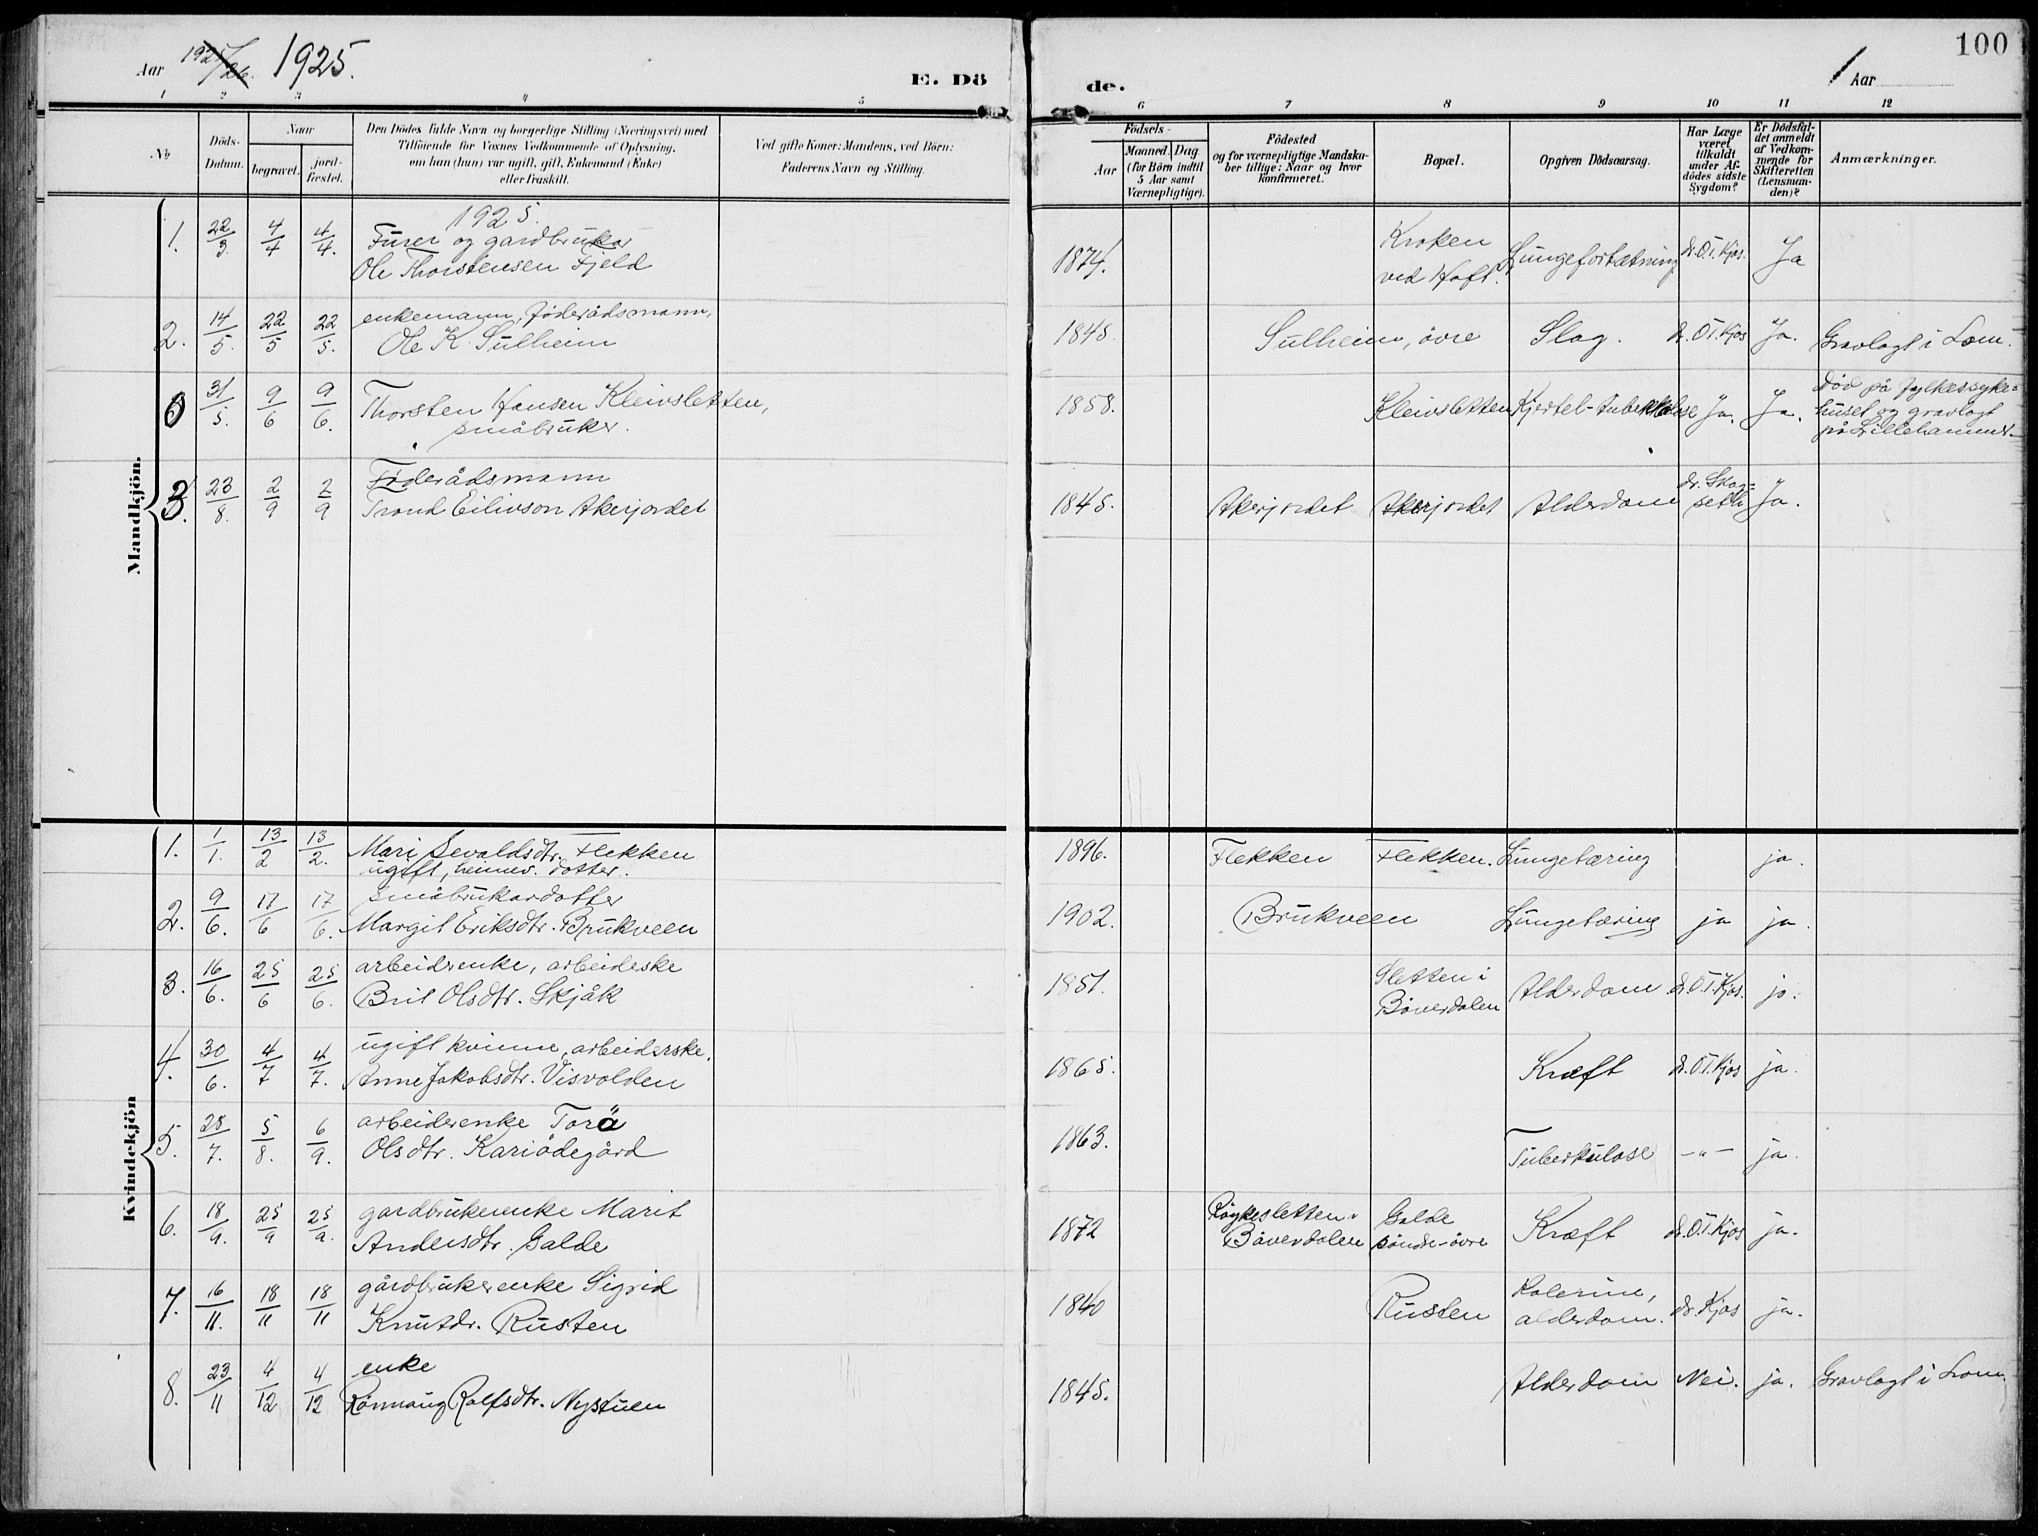 Aar 1925/26. 1925.
E. Dö
de.
Aar
100
1 2 3 4 5
6 7 8 9 10 11 12
No
Döds-
Datum.
Naar
begravet.
jord-
fæstet.
Den Dödes fulde Navn og borgerlige Stilling (Næringsvei) med
Tilföiende for Voxnes Vedkommende af Oplysning,
om han (hun) var ugift, gift, Enkemand (Enke)
eller fraskilt.
Ved gifte Koner: Mandens, ved Börn:
Faderens Navn og Stilling.
Födsels-
Aar
Maaned. Dag
(for Börn indtil
5 Aar samt
Værnepligtige).
Födested
og for værnepligtige Mandska-
ber tillige: Naar og hvor
konfirmeret.
Bopæl.
Opgiven Dödsaarsag.
Har Læge
været
tilkaldt
under Af-
dödes sidste
Sygdom?
Er Dödsfal-
det anmeldt
af Vedkom-
mende for
Skifteretten
(Lensman-
den)?
Anmærkninger.
Mandkjön.
1925.
1. 22/3. 4/4 4/4. Furer og gardbruker
Ole Thorstensen Fjeld
1874. Kroken
ved Hoft. Lungefortætning dr. O.T. Kjos. Ja
2. 14/5. 22/5 22/5. enkemann, föderådsmann,
Ole K. Sulheim
1845. Sulheim, övre Slag. dr. O.T. Kjos Ja. Gravlagt i Lom.
0 31/5. 9/6 9/6. Thorsten Hansen Kleivsletten,
småbruker.
1858. Kleivsletten Kjertel-tuberkulose Ja. Ja. Död på fylkessyke-
huset og gravlagt
på Lillehammer.
3. 23/8. 2/9 2/9 Föderådsmann
Trond Eilivson Akerjordet
1845. Akerjordet Akerjordet Alderdom dr. Skog-
seth Ja.
Kvindekjön
1. 1/1. 13/2 13/2. Mari Sevaldsdtr. Flekken
ugift, heimev. dotter.
1896. Flekken Flekken. Lungetæring ja.
2. 9/6. 17/6 17/6. småbrukardotter
Margit Eriksdtr. Brukveen
1902. Brukveen Lungetæring ja ja.
3. 16/6. 25/6 25/6. arbeiderenke, arbeideske
Brit Olsdtr. Skjåk
1851. Sletten i
Böverdalen Alderdom dr. O.T. Kjos. jo.
4. 30/6. 4/7 4/7. ugift kvinne, arbeiderske.
Anne Jakobsdtr. Visvolden
1865. Kræft dr. O.T. Kjos ja.
5. 28/7. 5/8. 6/9. arbeiderenke Torö
Olsdtr. Kariödegård
1863. Tuberkulose -"- ja.
6. 18/9. 25/9 25/9. gardbrukerenke Marit
Andersdtr. Galde
1872 Röykesletten i
Böverdalen Galde
söndre-övre Kræft dr. O.T. Kjos ja.
7. 16/11. 18/11 18/11 gårdbrukerenke Sigrid
Knutdr. Rusten
1840 Rusten Kolerine,
alderdom. dr. Kjos ja.
8. 23/11 4/12 4/12 enke
Rönnaug Rolfsdtr. Nystuen
1845. Alderdom Nei. ja. Gravlagt i Lom.